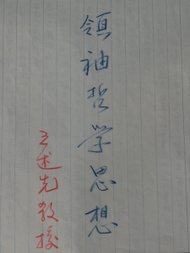 領袖哲学思想
王述先敎授